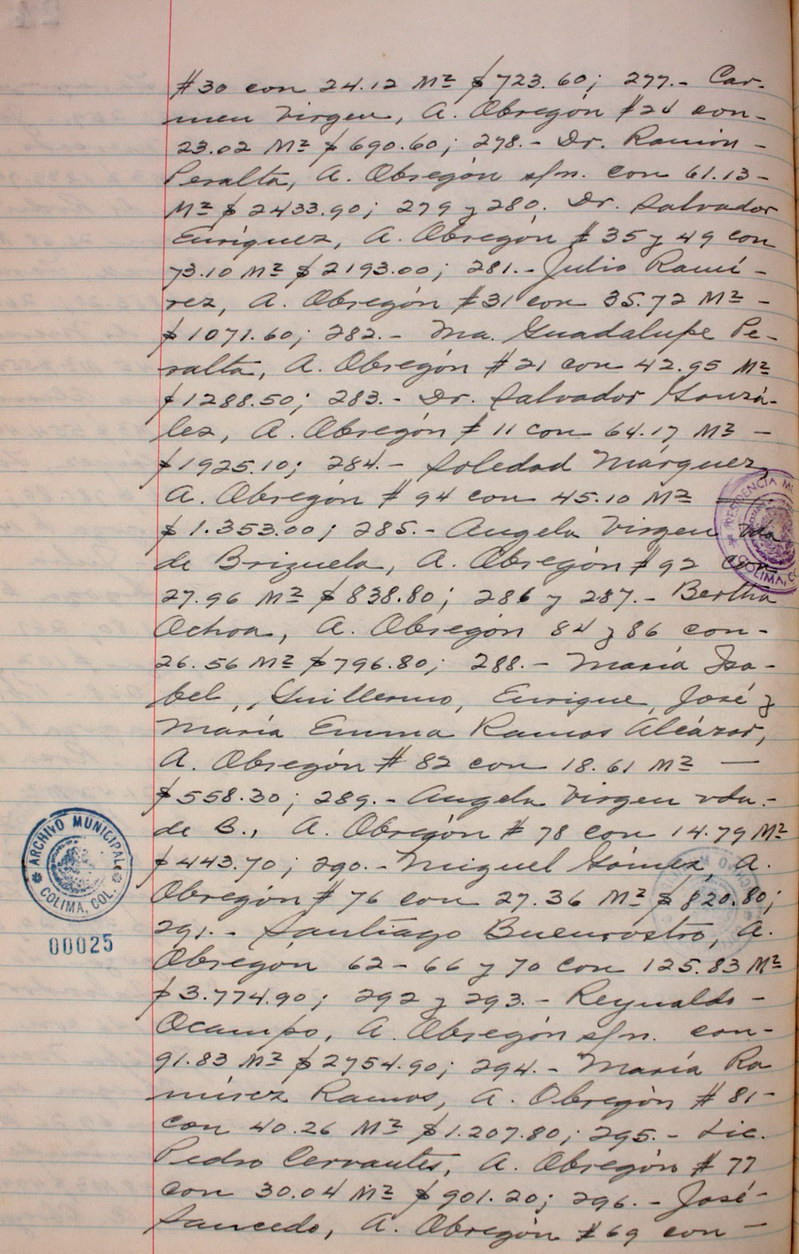 #30 con 24.12 M² $723.60; 277.- Car-
men Virgen, A. Obregón #24 con-
23.02 M² $690.60; 278.- Dr. Ramón-
Peralta, A. Obregón s/n. con 61.13-
M² $2433.90; 279 y 280. Dr. Salvador
Enríquez, A. Obregón #35 y 49 con
73.10 M² $2193.00; 281.- Julio Ramí-
rez, A. Obregón #31 con 35.72 M²-
$1071.60; 282.- Ma. Guadalupe Pe-
ralta, A. Obregón #21 con 42.95 M²
$1288.50; 283.- Dr. Salvador Gonzá-
lez, A. Obregón #11 con 64.17 M²-
$1925.10; 284.- Soledad Márquez,
A. Obregón #94 con 45.10 M²
$1.353.00; 285.- Angela Virgen vda
de Brizuela, A. Obregón #92 con
27.96 M² $838.80; 286 y 287.- Bertha
Ochoa, A. Obregón 84 y 86 con-
26.56 M² $796.80; 288.- María Isa-
bel, Guillermo, Enrique, José y
María Emma Ramos Alcázar,
A. Obregón #82 con 18.61 M² —
$558.30; 289.- Angela Virgen vda.-
de B., A. Obregón #78 con 14.79 M²
$443.70; 290.- Miguel Gómez, A.
Obregón #76 con 27.36 M² $820.80;
291.- Santiago Buenrostro, A.
Obregón 62-66 y 70 con 125.83 M²
$3.774.90; 292 y 293.- Reynaldo-
Ocampo, A. Obregón s/n. con-
91.83 M² $2754.90; 294.- María Ra
mírez Ramos, A. Obregón #81-
con 40.26 M² $1.207.80; 295.- Lic.
Pedro Cervantes, A. Obregón #77
con 30.04 M² $901.20; 296.- José-
Saucedo, A. Obregón #69 con —
PRESIDENCIA M
COLIMA, CO
ARCHIVO MUNICIPAL
COLIMA, COL.
00025